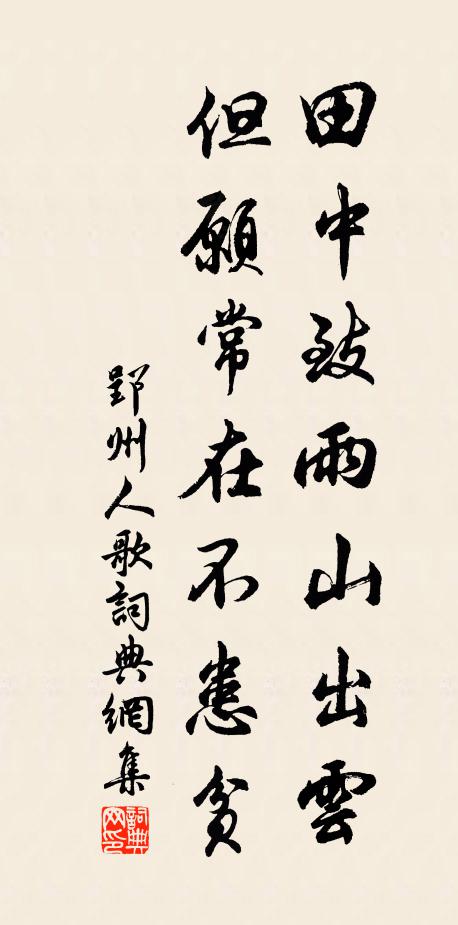 田中致雨山出雲
但願常在不患貧
郢州人歌詞典網集
詞典网印